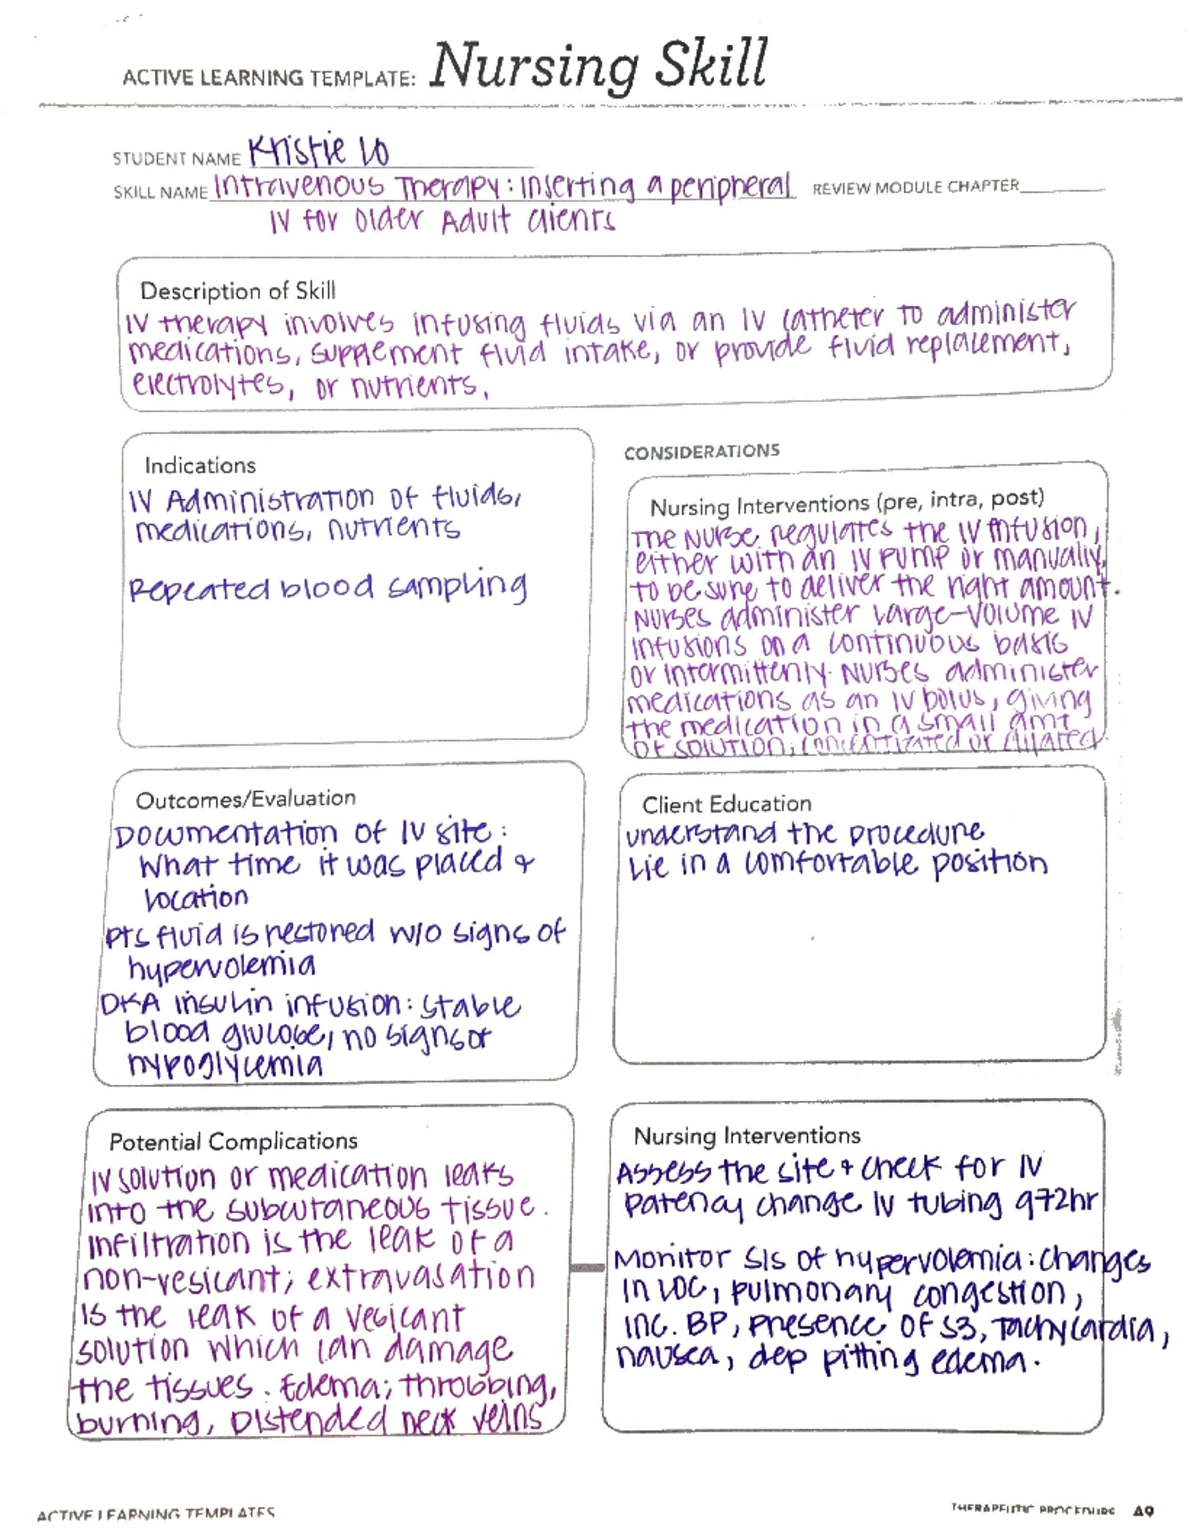 ACTIVE LEARNING TEMPLATE: Nursing Skill
STUDENT NAME Kristie Lo
SKILL NAME Intravenous Therapy: Inserting a peripheral REVIEW MODULE CHAPTER
IV for Older Adult clients
Description of Skill
IV therapy involves infusing fluids via an IV catheter to administer
medications, supplement fluid intake, or provide fluid replacement,
electrolytes, or nutrients.
Indications
IV Administration of fluids,
medications, nutrients
Repeated blood sampling
CONSIDERATIONS
Nursing Interventions (pre, intra, post)
The Nurse regulates the IV infusion,
either with an IV pump or manually,
to be sure to deliver the right amount.
Nurses administer large-volume IV
infusions on a continuous basis
or intermittenly. Nurses administer
medications as an IV bolus, giving
the medication in a small amt
of solution, concentrated or diluted
Outcomes/Evaluation
Documentation of IV site:
What time it was placed &
location
Pts fluid is restored w/o signs of
hypervolemia
DKA insulin infusion: stable
blood glucose, no signs of
hypoglycemia
Client Education
understand the procedure
Lie in a comfortable position
Potential Complications
IV solution or medication leaks
into the subcutaneous tissue.
Infiltration is the leak of a
non-vesicant; extravasation
is the leak of a vesicant
solution which can damage
the tissues. Edema; throbbing,
burning, Distended neck veins
Nursing Interventions
Assess the site & check for IV
patency change IV tubing q72hr
Monitor S/S of hypervolemia: changes
in LOC, pulmonary congestion,
inc. BP, presence of S3, tachycardia,
nausea, dep pitting edema.
ACTIVE LEARNING TEMPLATES
THERAPEUTIC PROCEDURE A9